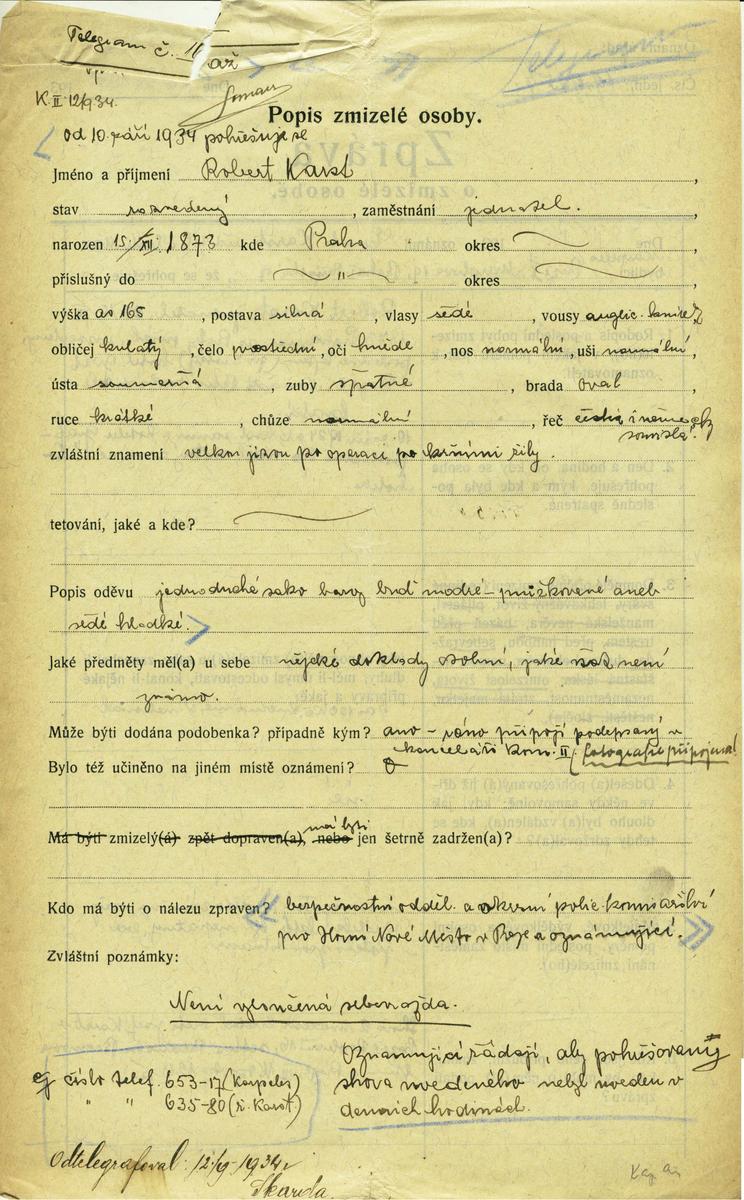 Telegram č.
až
K. II 12/9 34.
Popis zmizelé osoby.
Od 10. září 1934 pohřešuje se
Jméno a příjmení Robert Karst,
stav rozvedený, zaměstnání jednatel.
narozen 15/XII. 1873 kde Praha okres
příslušný do " okres
výška as 165, postava silná, vlasy šedé, vousy anglic.
obličej kulatý, čelo prostřední, oči hnědé, nos normální, uši normální,
ústa souměrná, zuby špatné, brada oval,
ruce krátké, chůze normální, řeč česká i německy
zvláštní znamení velkou jizvu po operaci po žíly.
tetování, jaké a kde?
Popis oděvu jednoduché sako barvy buď modré – proužkované aneb
šedé hladké.
Jaké předměty měl(a) u sebe nějaké doklady osobní, jaké není
známo.
Může býti dodána podobenka? případně kým? ano – ráno připojí podepsaný v
kanceláři kom. II (fotografie připojena!
Bylo též učiněno na jiném místě oznámení?
má býti
Má býti zmizelý(á) zpět dopraven(a), nebo jen šetrně zadržen(a)?
Kdo má býti o nálezu zpraven? bezpečnostní odděl. a okresní polic. komisařství
pro Horní Nové Město v Praze a oznamující.
Zvláštní poznámky:
Není vyloučená sebevražda.
Oznamující žádají, aby pohřešovaný
shora uvedeného nebyl uveden v
denních hodinách.
číslo telef. 653-17 (Karpeles)
" " 635-80 (r. Karst.)
Odtelegrafoval: 12/9 1934
Skarda.